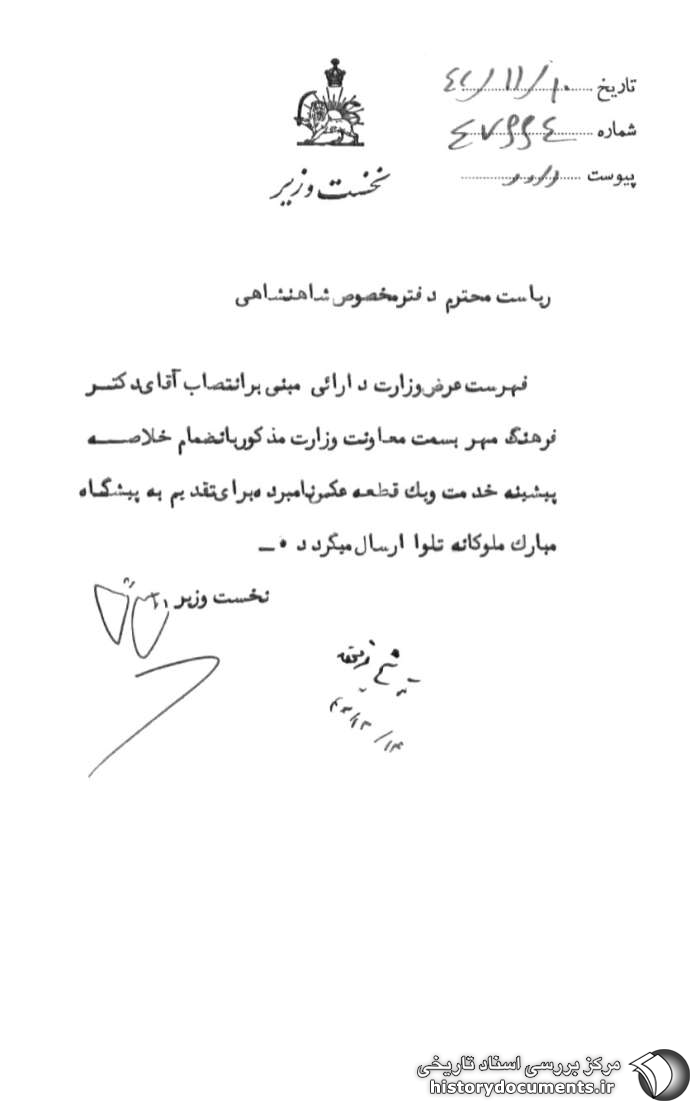 تاریخ ۴۲/۱۱/۱۰
شماره ۴۷۹۹۴
پیوست
نخست وزیر
ریاست محترم دفترمخصوص شاهنشاهی
فهرست عرض وزارت دارائی مبنی برانتصاب آقای دکتر
فرهنگ مهر بسمت معاونت وزارت مذکور بانضمام خلاصه
پیشینه خدمت ویك قطعه عکس نامبرده برای تقدیم به پیشگاه
مبارك ملوکانه تلوا ارسال میگردد ٠ــ
نخست وزیر
مرکز بررسی اسناد تاریخی
historydocuments.ir